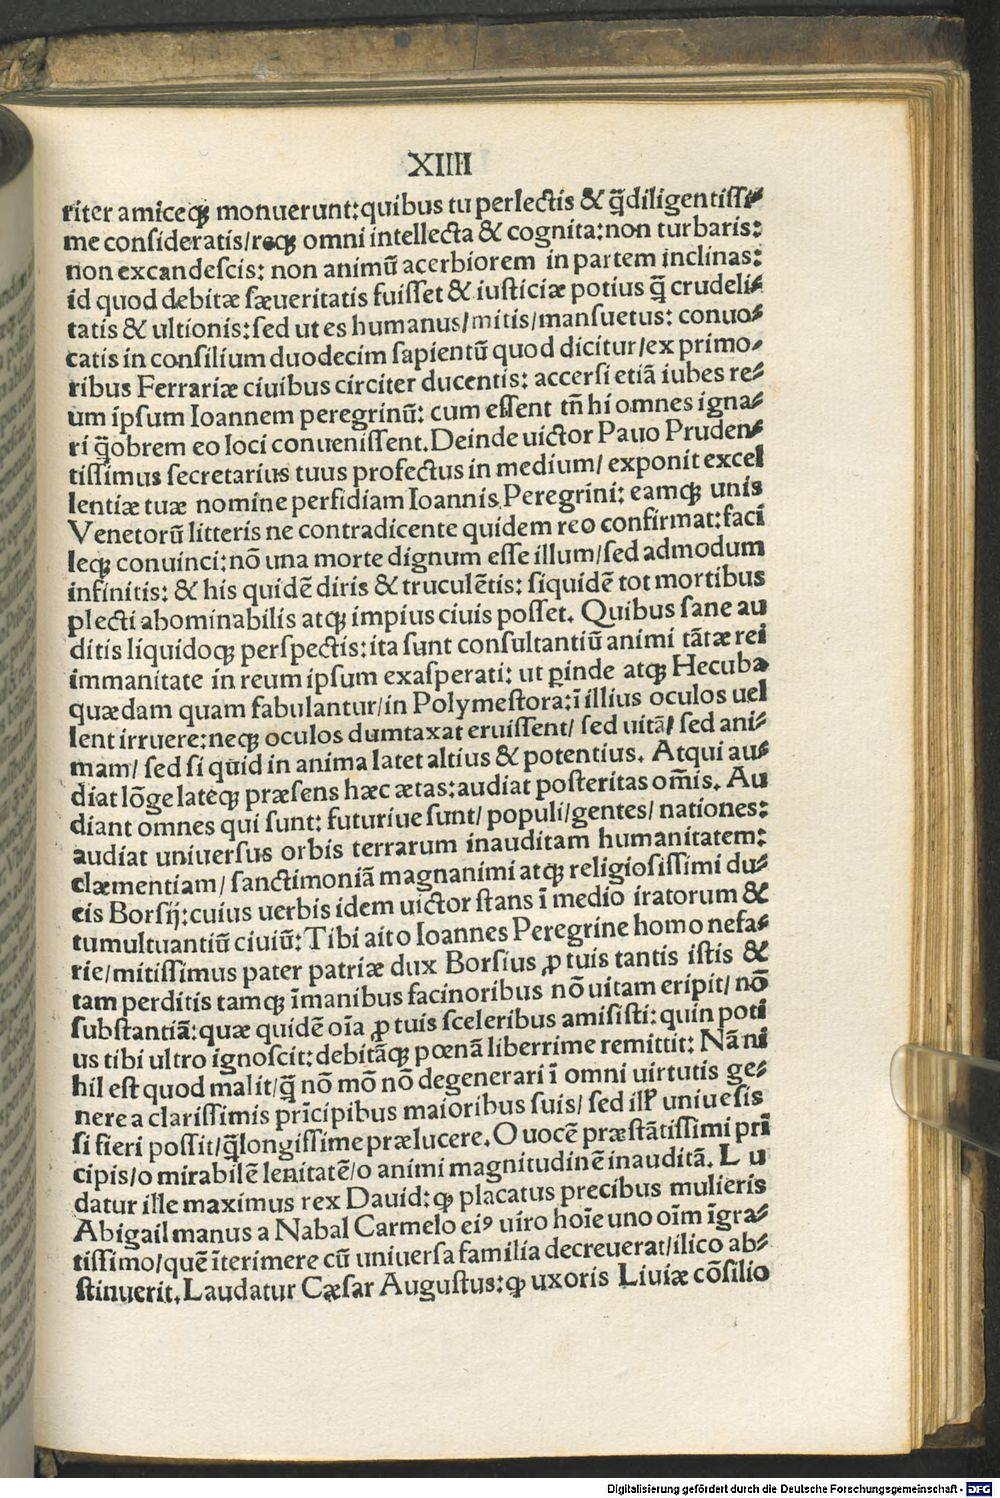 XIIII
riter amiceqꝫ monuerunt:quibus tu perlectis & q̃diligentiſſi⸗
me conſideratis/reqꝫ omni intellecta & cognita:non turbaris:
non excandeſcis: non animũ acerbiorem in partem inclinas:
id quod debitæ ſæueritatis fuiſſet & iuſticiæ potius q̃ crudeli⸗
tatis & ultionis:ſed ut es humanus/mitis/manſuetus: conuo⸗
catis in conſilium duodecim ſapientũ quod dicitur/ex primo⸗
ribus Ferrariæ ciuibus circiter ducentis: accerſi etiã iubes re⸗
um ipſum Ioannem peregrinũ: cum eſſent tñ hi omnes igna⸗
ri q̃obrem eo loci conueniſſent.Deinde uictor Pauo Pruden⸗
tiſſimus ſecretarius tuus profectus in medium/ exponit excel
lentiæ tuæ nomine perfidiam Ioannis Peregrini: eamqꝫ unis
Venetorũ litteris ne contradicente quidem reo confirmat:faci
leqꝫ conuinci:nõ una morte dignum eſſe illum/ſed admodum
infinitis: & his quidẽ diris & truculẽtis: ſiquidẽ tot mortibus
plecti abominabilis atqꝫ impius ciuis poſſet. Quibus ſane au
ditis liquidoqꝫ perſpectis:ita ſunt conſultantiũ animi tãtæ rei
immanitate in reum ipſum exaſperati: ut ꝑinde atqꝫ Hecuba
quædam quam fabulantur/in Polymeſtora:ĩ illius oculos uel
lent irruere:neqꝫ oculos dumtaxat eruiſſent/ ſed uitã/ ſed ani⸗
mam/ ſed ſi quid in anima latet altius & potentius. Atqui au⸗
diat lõge lateqꝫ præſens hæc ætas:audiat poſteritas om̃is. Au
diant omnes qui ſunt: futuriue ſunt/ populi/gentes/ nationes:
audiat uniuerſus orbis terrarum inauditam humanitatem:
clæmentiam/ ſanctimoniã magnanimi atqꝫ religioſiſſimi du⸗
cis Borſij:cuius uerbis idem uictor ſtans ĩ medio iratorum &
tumultuantiũ ciuiũ:Tibi aito Ioannes Peregrine homo nefa⸗
rie/mitiſſimus pater patriæ dux Borſius ꝓ tuis tantis iſtis &
tam perditis tamqꝫ ĩmanibus facinoribus nõ uitam eripit/ nõ
ſubſtantiã:quæ quidẽ oĩa ꝓ tuis ſceleribus amiſiſti:quin poti
us tibi ultro ignoſcit:debitãqꝫ pœnã liberrime remittit: Nã ni
hil eſt quod malit/q̃ nõ mõ nõ degenerari ĩ omni uirtutis ge⸗
nere a clariſſimis prĩcipibus maioribus ſuis/ ſed uniueſis
ſi fieri poſſit/q̃longiſſime prælucere.O uocẽ præſtãtiſſimi prĩ
cipis/o mirabilẽ lenitatẽ/o animi magnitudinẽ inauditã. L u
datur ille maximus rex Dauid:ꝙ placatus precibus mulieris
Abigail manus a Nabal Carmelo eiꝰ uiro hoĩe uno oĩm ĩgra⸗
tiſſimo/quẽ ĩterimere cũ uniuerſa familia decreuerat/ilico ab⸗
ſtinuerit.Laudatur Cæſar Auguſtus:ꝙ uxoris Liuiæ cõſilio
Digitalisierung gefördert durch die Deutsche Forschungsgemeinschaft - DFG